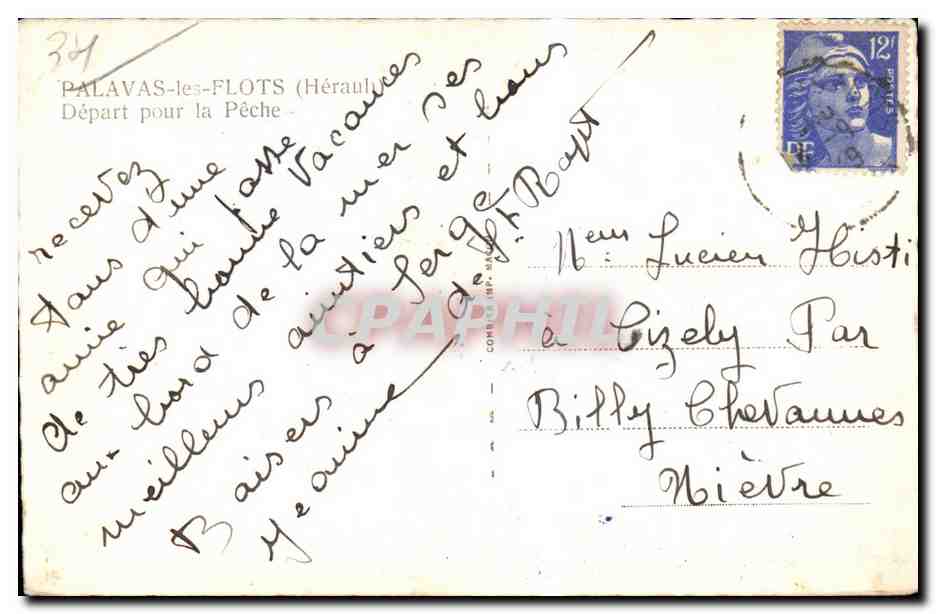 34
PALAVAS-les-FLOTS (Hérault)
Départ pour la Pêche
recevez
tous d'une
amie qui passe
de très bonne vacances
aux bord de la mer ses
meilleurs amitiers et bons
Baisers à Serge
Jeanine de St Rapt
COMBIER IMP. MACON
12F
POSTES
RF
CPAPHIL
Mem Lucien Histi
à Cizely Par
Billy Chevannes
Nièvre